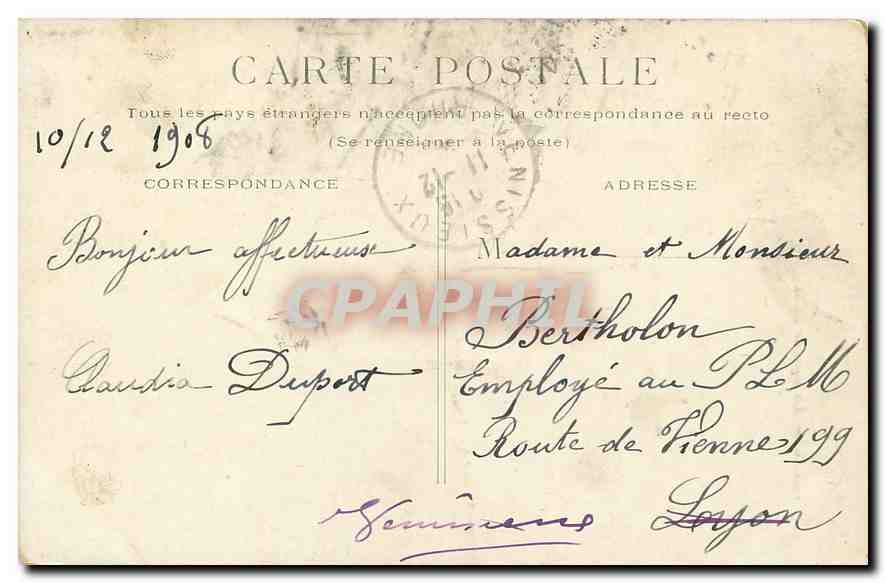 CARTE POSTALE
Tous les pays étrangers n'acceptent pas la correspondance au recto
(Se renseigner à la poste)
10/12 1908
CORRESPONDANCE
ADRESSE
VENISSIEUX
11 -12
Bonjour affectueuse
Claudia Duport
Madame et Monsieur
Bertholon
Employé au P L M
Route de Vienne 199
Lyon
CPAPHIL